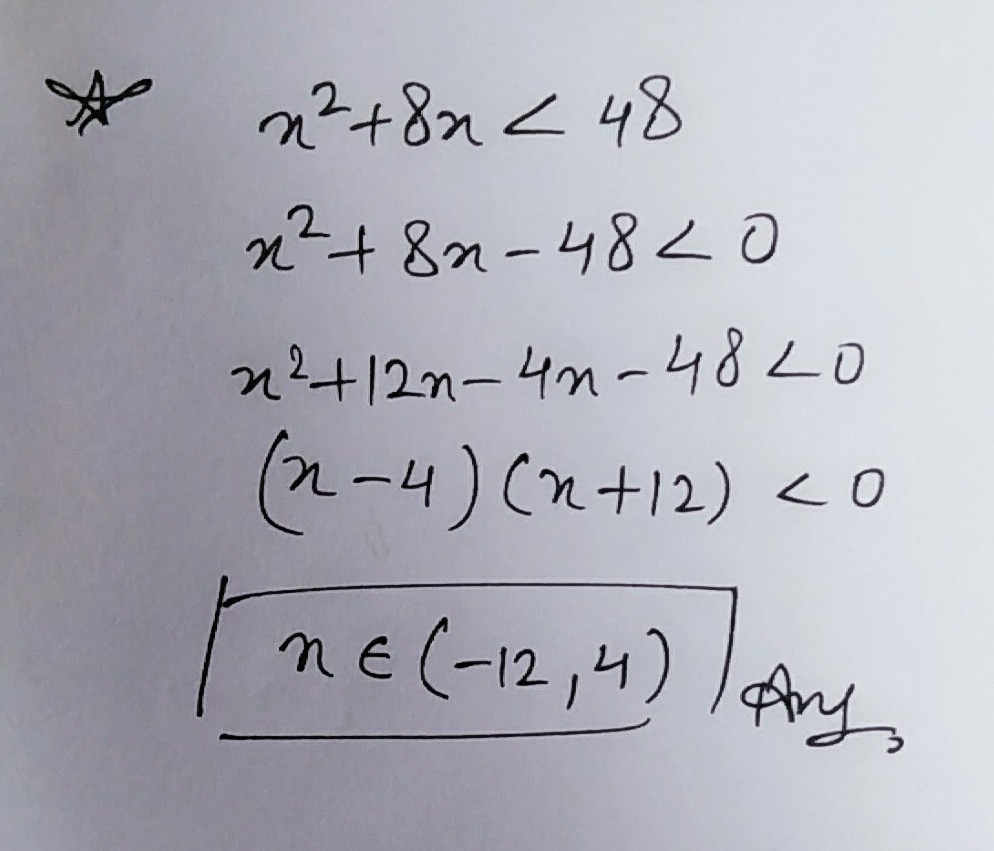 x²+8x < 48
x²+8x-48<0
x²+12x-4x-48<0
(x-4)(x+12) <0
x∈(-12,4) Ans